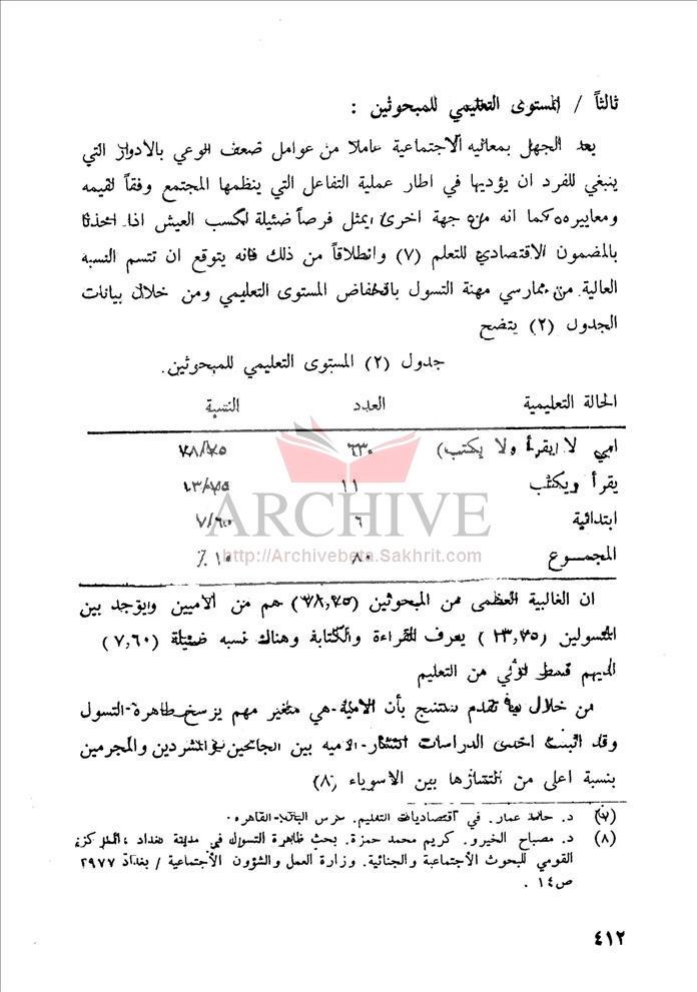 ثالثاً / المستوى التعليمي للمبحوثين :
يعد الجهل بمعانيه الاجتماعية عاملا من عوامل ضعف الوعي بالادوار التي
ينبغي للفرد ان يؤديها في اطار عملية التفاعل التي ينظمها المجتمع وفقاً لقيمه
ومعاييره كما انه من جهة اخرى يمثل فرصاً ضئيلة لكسب العيش اذا اخذنا
بالمضمون الاقتصادي للتعلم (٧) وانطلاقاً من ذلك فانه يتوقع ان تتسم النسبه
العالية من ممارسي مهنة التسول بانخفاض المستوى التعليمي ومن خلال بيانات
الجدول (٢) يتضح
جدول (٢) المستوى التعليمي للمبحوثين.
الحالة التعليمية العدد النسبة
امي لا ايقرأ ولا يكتب) ٦٣٠ ٧٨/٧٥
يقرأ ويكتب ١١ ١٣/٧٥
ابتدائية ٦ ٧/٦٠
المجمــوع ٨٠ ١٠٠٪
ARCHIVE
http://Archivebeta.Sakhrit.com
ان الغالبية العظمى من المبحوثين (٧٨,٧٥) هم من الاميين ويوجد بين
المتسولين (١٣,٧٥) يعرف للقراءة والكتابة وهناك نسبه ضئيلة (٧,٦٠)
لديهم قسط من التعليم
من خلال تقدم نستنتج بأن الامية هي متغير مهم يرسخ ظاهرة التسول
وقد اثبتت احدى الدراسات انتشار الاميه بين الجانحين والمتشردين والمجرمين
بنسبة اعلى من انتشارها بين الاسوياء (٨)
(٧) د. حامد عمار. في اقتصاديات التعليم. القاهره.
(٨) د. مصباح الخيرو. كريم محمد حمزة. بحث ظاهرة التسول في مدينة بغداد ، المركز
القومي للبحوث الأجتماعية والجنائية. وزارة العمل والشؤون الأجتماعية / بغداد ٢٩٧٧
ص١٤ .
٤١٢